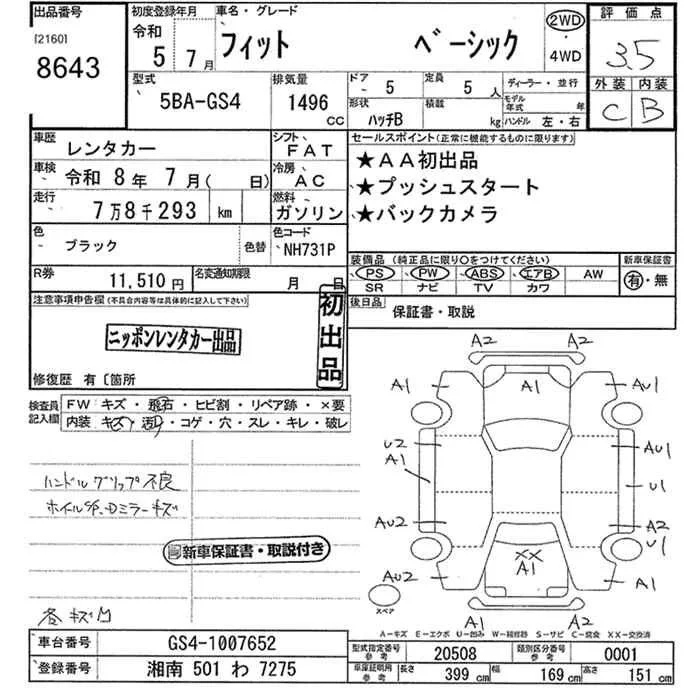 出品番号
[2160]
8643
初度登録年月
令和
5 7月
車名・グレード
フィット ベーシック
2WD
・
4WD
評価点
3.5
外装 内装
C B
型式
5BA-GS4
排気量
1496
CC
ドア
5
定員
5 人
形状
ハッチB
積載
kg
ディーラー・並行
モデル年式 年
ハンドル 左・右
車歴
レンタカー
シフト
FAT
車検
令和 8年 7月( 日)
冷房
AC
走行
7万8千293 km
燃料
ガソリン
色
ブラック
色替
色コード
NH731P
R券
11,510円
名変通知期限
月 日
セールスポイント(正常に機能するものに限ります)
★AA初出品
★プッシュスタート
★バックカメラ
装備品(純正品に限り○をつけてください)
PS PW ABS エアB AW
SR ナビ TV カワ
新車保証書
有・無
後日品
保証書・取説
注意事項申告欄(不具合内容等は具体的に記入して下さい)
ニッポンレンタカー出品
初出品
修復歴 有〔箇所
検査員記入欄
FW キズ・飛石・ヒビ割・リペア跡・×要
内装 キズ・汚れ・コゲ・穴・スレ・キレ・破レ
ハンドルグリップ不良
ホイル4P.Dミラーキズ
新車保証書・取説付き
各キズ凹
A2 A2
A1 A1 AU1
U2 AU1
A1 U1
AU2 A2
U1
XX
A1
AU2 A1
スペア
A1 A2
A-キズ E-エクボ U-凹み W-補修跡 S-サビ C-腐食 XX-交換済
車台番号
GS4-1007652
登録番号
湘南 501 わ 7275
型式指定番号
参考
20508
類別区分番号
参考
0001
車庫証明用
参考
長さ
399 cm
幅
169 cm
高さ
151 cm